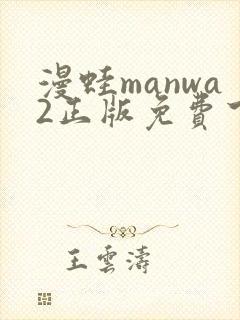 漫蛙manwa
2正版免費
王雲濤